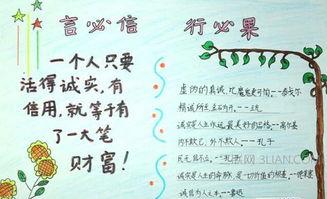 言必信
行必果
一个人只要
活得诚实,有
信用,就等于有
了一大笔
财富!
虚伪的真诚,比魔鬼更可怕。--泰戈尔
精诚所至,金石为开。
诚实是人生永远最美好的品格。--高尔基
内不欺己,外不欺人。--孔子
民无信不立。--孔子
诚实是人生的命脉,是一切价值的根基。--德莱塞
诚信为人之本。--鲁迅
网 3LIAN.COM